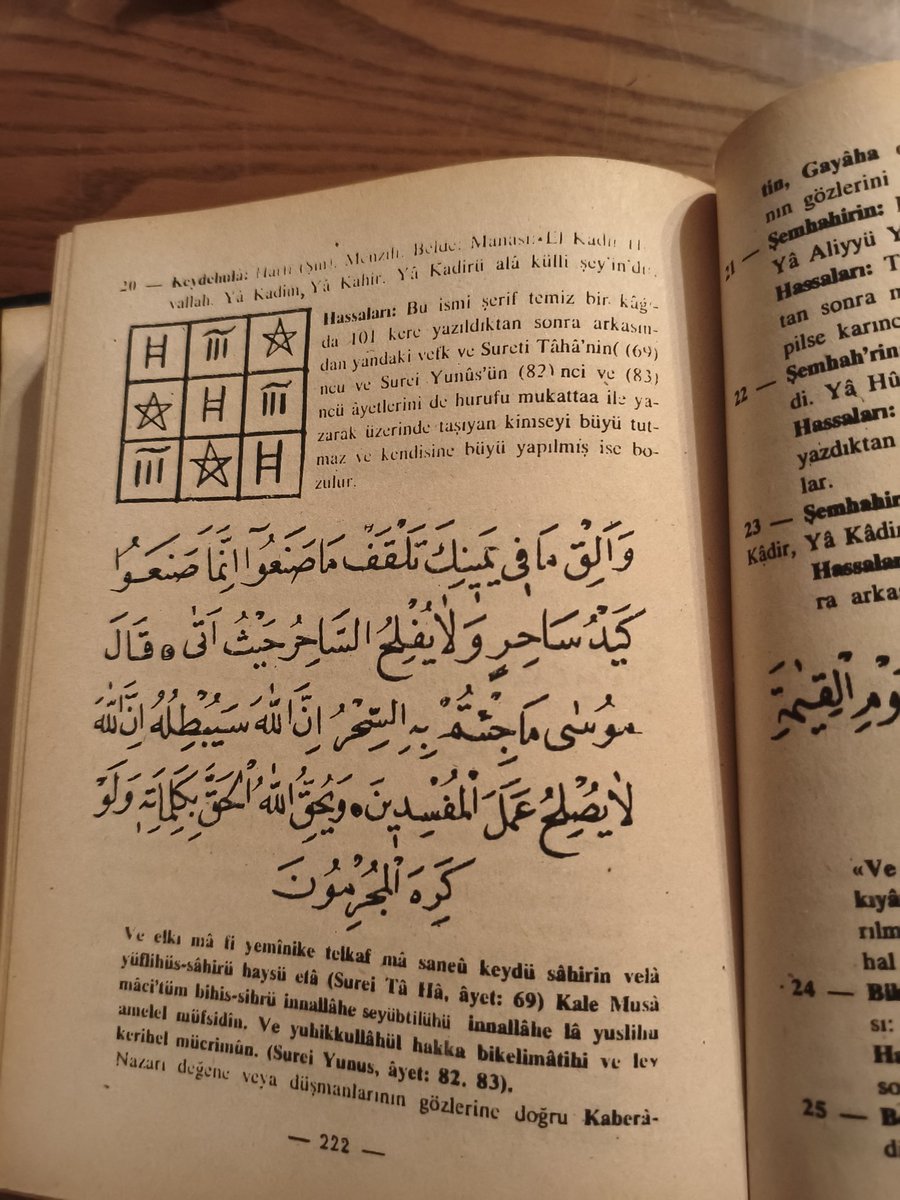 20 — Keydehulâ: Harfi (Şın), Menzili, Belde: Manası: El Kadir
vallah. Yâ Kadim, Yâ Kahir. Yâ Kadirü alâ külli şey'in
Hassaları: Bu ismi şerif temiz bir kâğı-
da 101 kere yazıldıktan sonra arkasın-
dan yandaki vefk ve Sureti Tâhâ'nin( (69)
ncu ve Surei Yunûs'ün (82) nci ve (83)
ncü âyetlerini de hurufu mukattaa ile ya-
zarak üzerinde taşıyan kimseyi büyü tut-
maz ve kendisine büyü yapılmış ise bo-
zulur.
وَاَلْقِ مَا فِي يَمِينِكَ تَلْقَفْ مَا صَنَعُوٓا اِنَّمَا صَنَعُوا
كَيْدُ سَاحِرٍ وَلَا يُفْلِحُ السَّاحِرُ حَيْثُ اَتٰى ۞ قَالَ
مُوسٰى مَا جِئْتُمْ بِهِ السِّحْرُ اِنَّ اللّٰهَ سَيُبْطِلُهُ اِنَّ اللّٰهَ
لَا يُصْلِحُ عَمَلَ الْمُفْسِدِينَ ۞ وَيُحِقُّ اللّٰهُ الْحَقَّ بِكَلِمَاتِهِ وَلَوْ
كَرِهَ الْمُجْرِمُونَ
Ve elkı mâ fi yemînike telkaf mâ saneû keydü sâhirin velâ
yüflihüs-sâhirü haysü etâ (Surei Tâ Hâ, âyet: 69) Kale Musâ
mâci'tüm bihis-sihrü innallâhe seyübtilühü innallâhe lâ yuslihu
amelel müfsidîn. Ve yuhikkullâhül hakka bikelimâtihi ve lev
kerihel mücrimûn. (Surei Yunus, âyet: 82. 83).
Nazarı değene veya düşmanlarının gözlerine doğru Kaberâ-
— 222 —
tin, Gayâha
nın gözlerini
21 — Şemhahirin:
Yâ Aliyyü
Hassaları:
tan sonra
pilse karınc
22 — Şembah'rin
di. Yâ Hû
Hassaları:
yazdıktan
lar.
23 — Şemhahir
Kâdir, Yâ Kâdi
Hassalar
ra arka
وْمِ الْقِيٰمَةِ
«Ve
kıyâ
rılm
hal
24 — Bük
sı:
Ha
so
25 — B
d